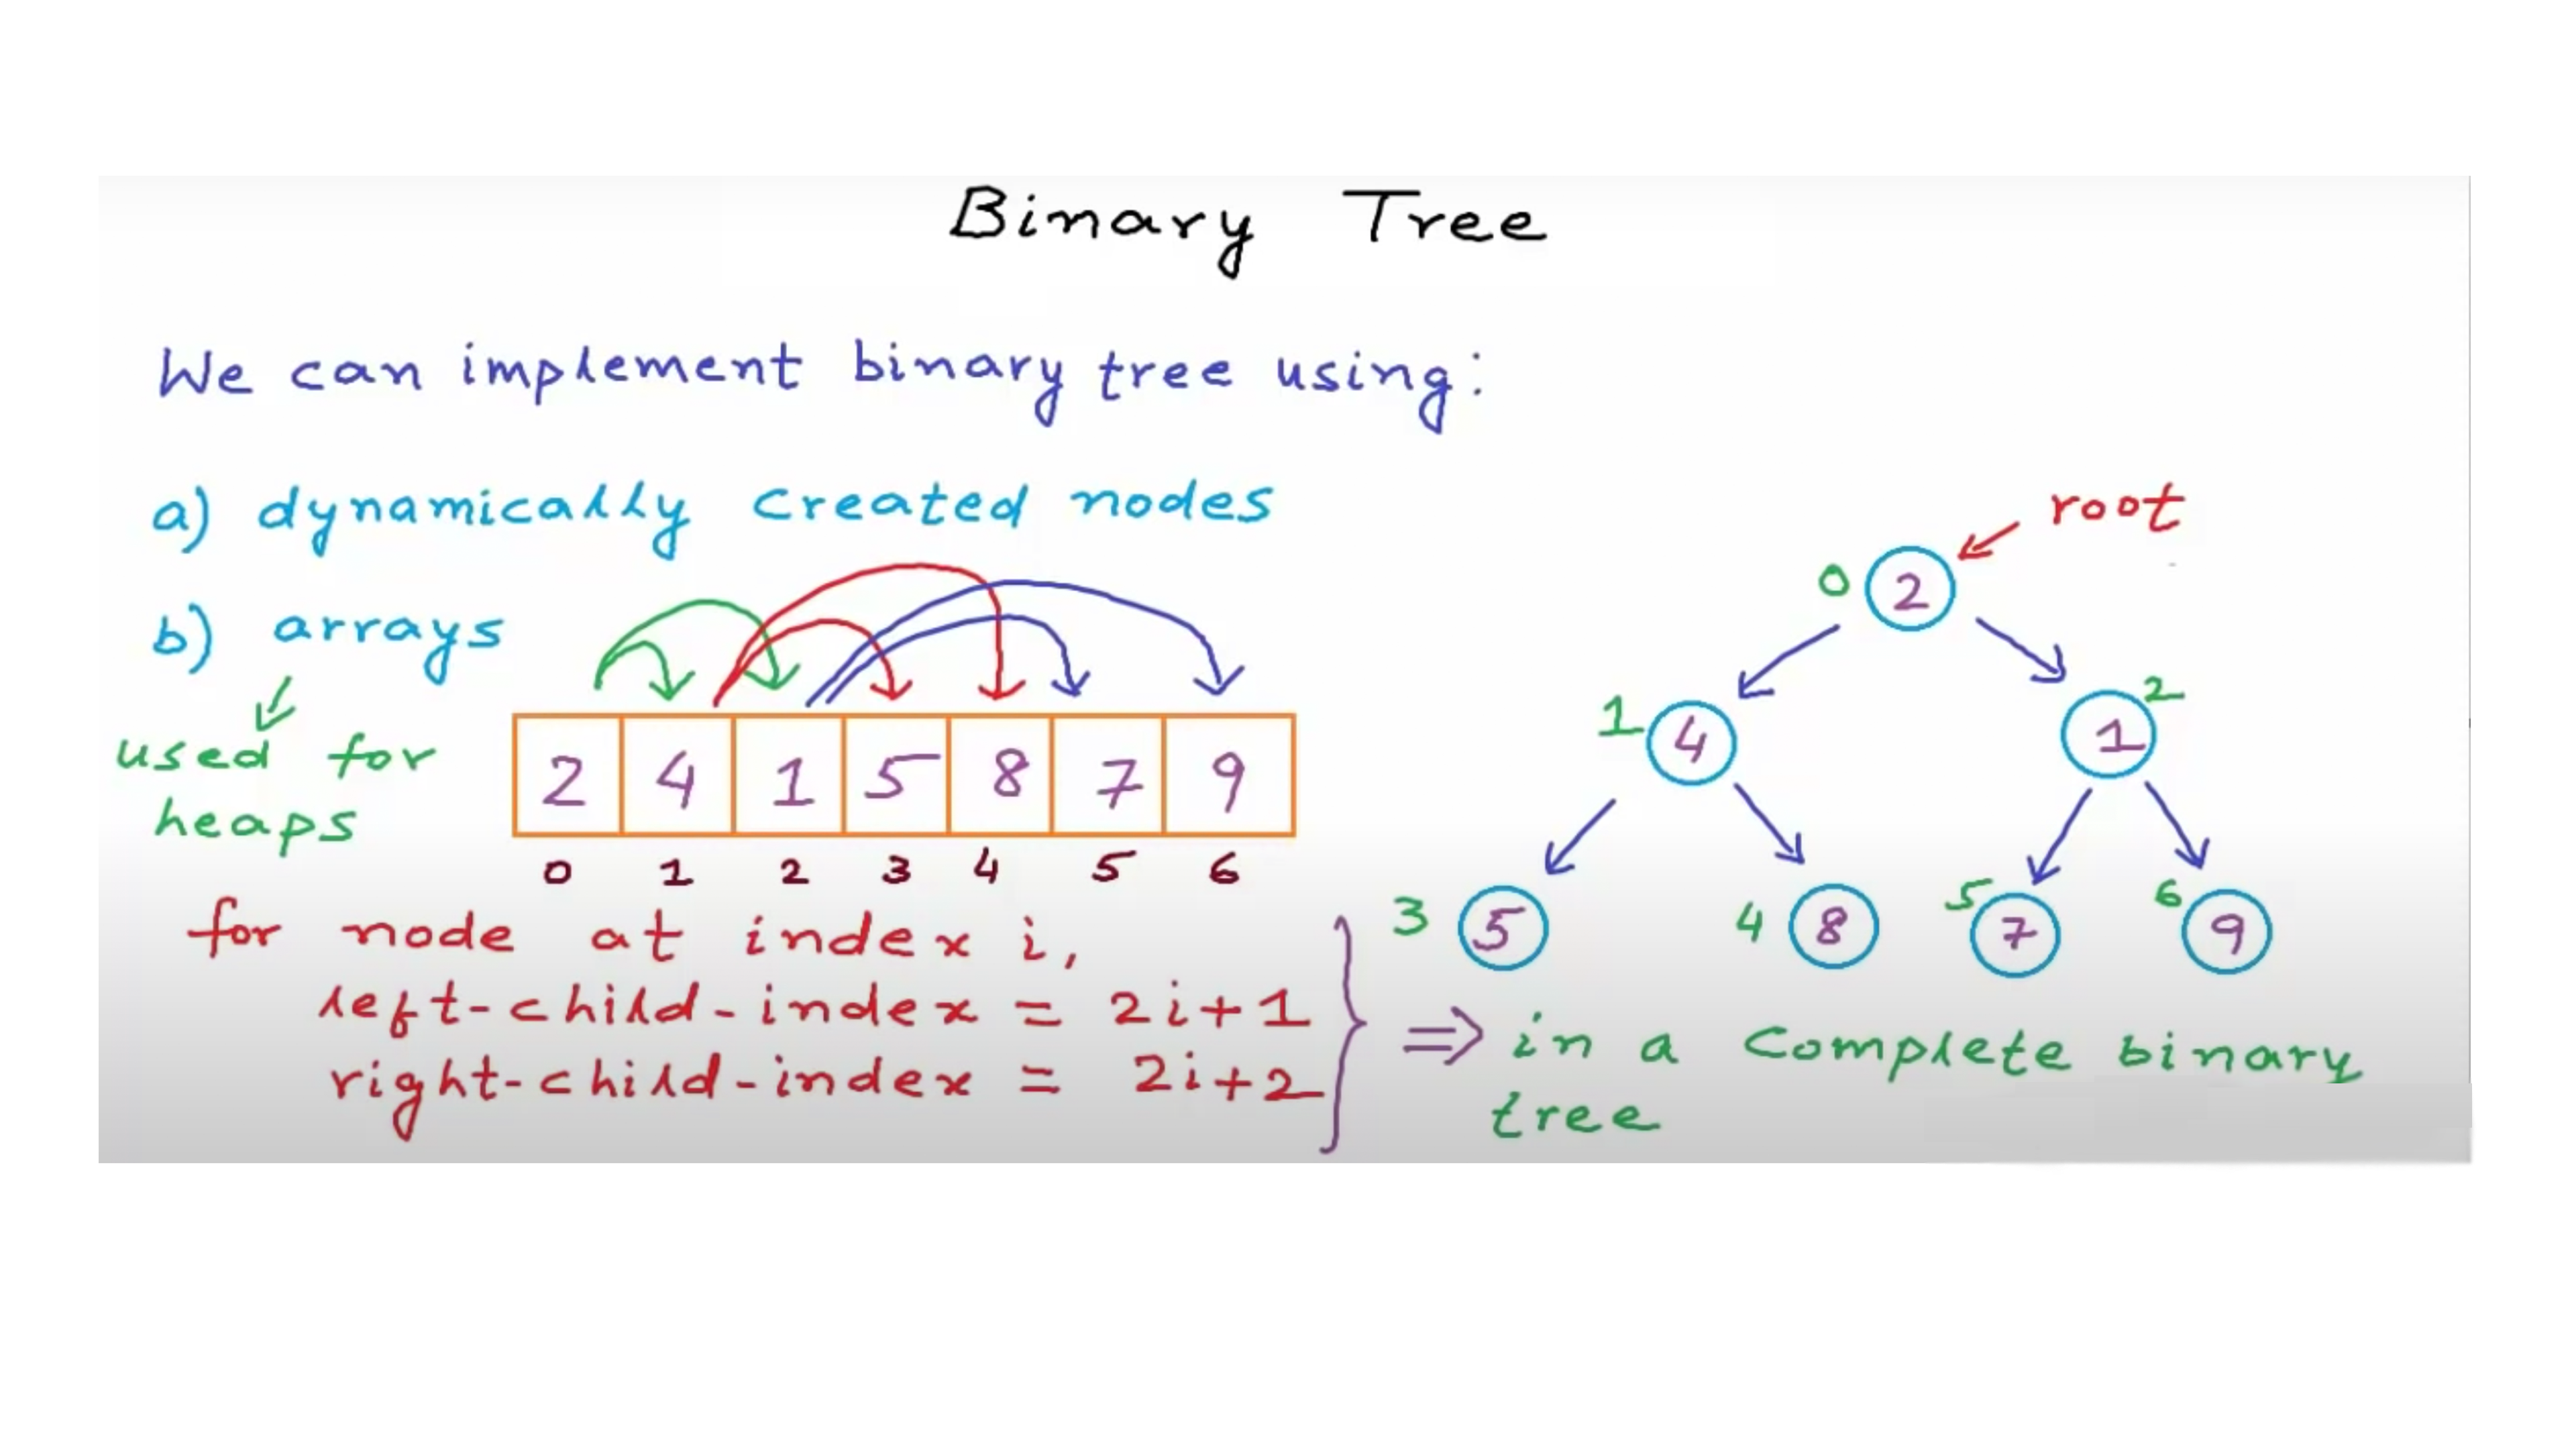 Binary Tree
We can implement binary tree using:
a) dynamically created nodes
b) arrays
used for
heaps
2 4 1 5 8 7 9
0 1 2 3 4 5 6
for node at index i,
left-child-index = 2i+1
right-child-index = 2i+2
root
0 2
1 4 1 2
3 5 4 8 5 7 6 9
⇒ in a complete binary
tree